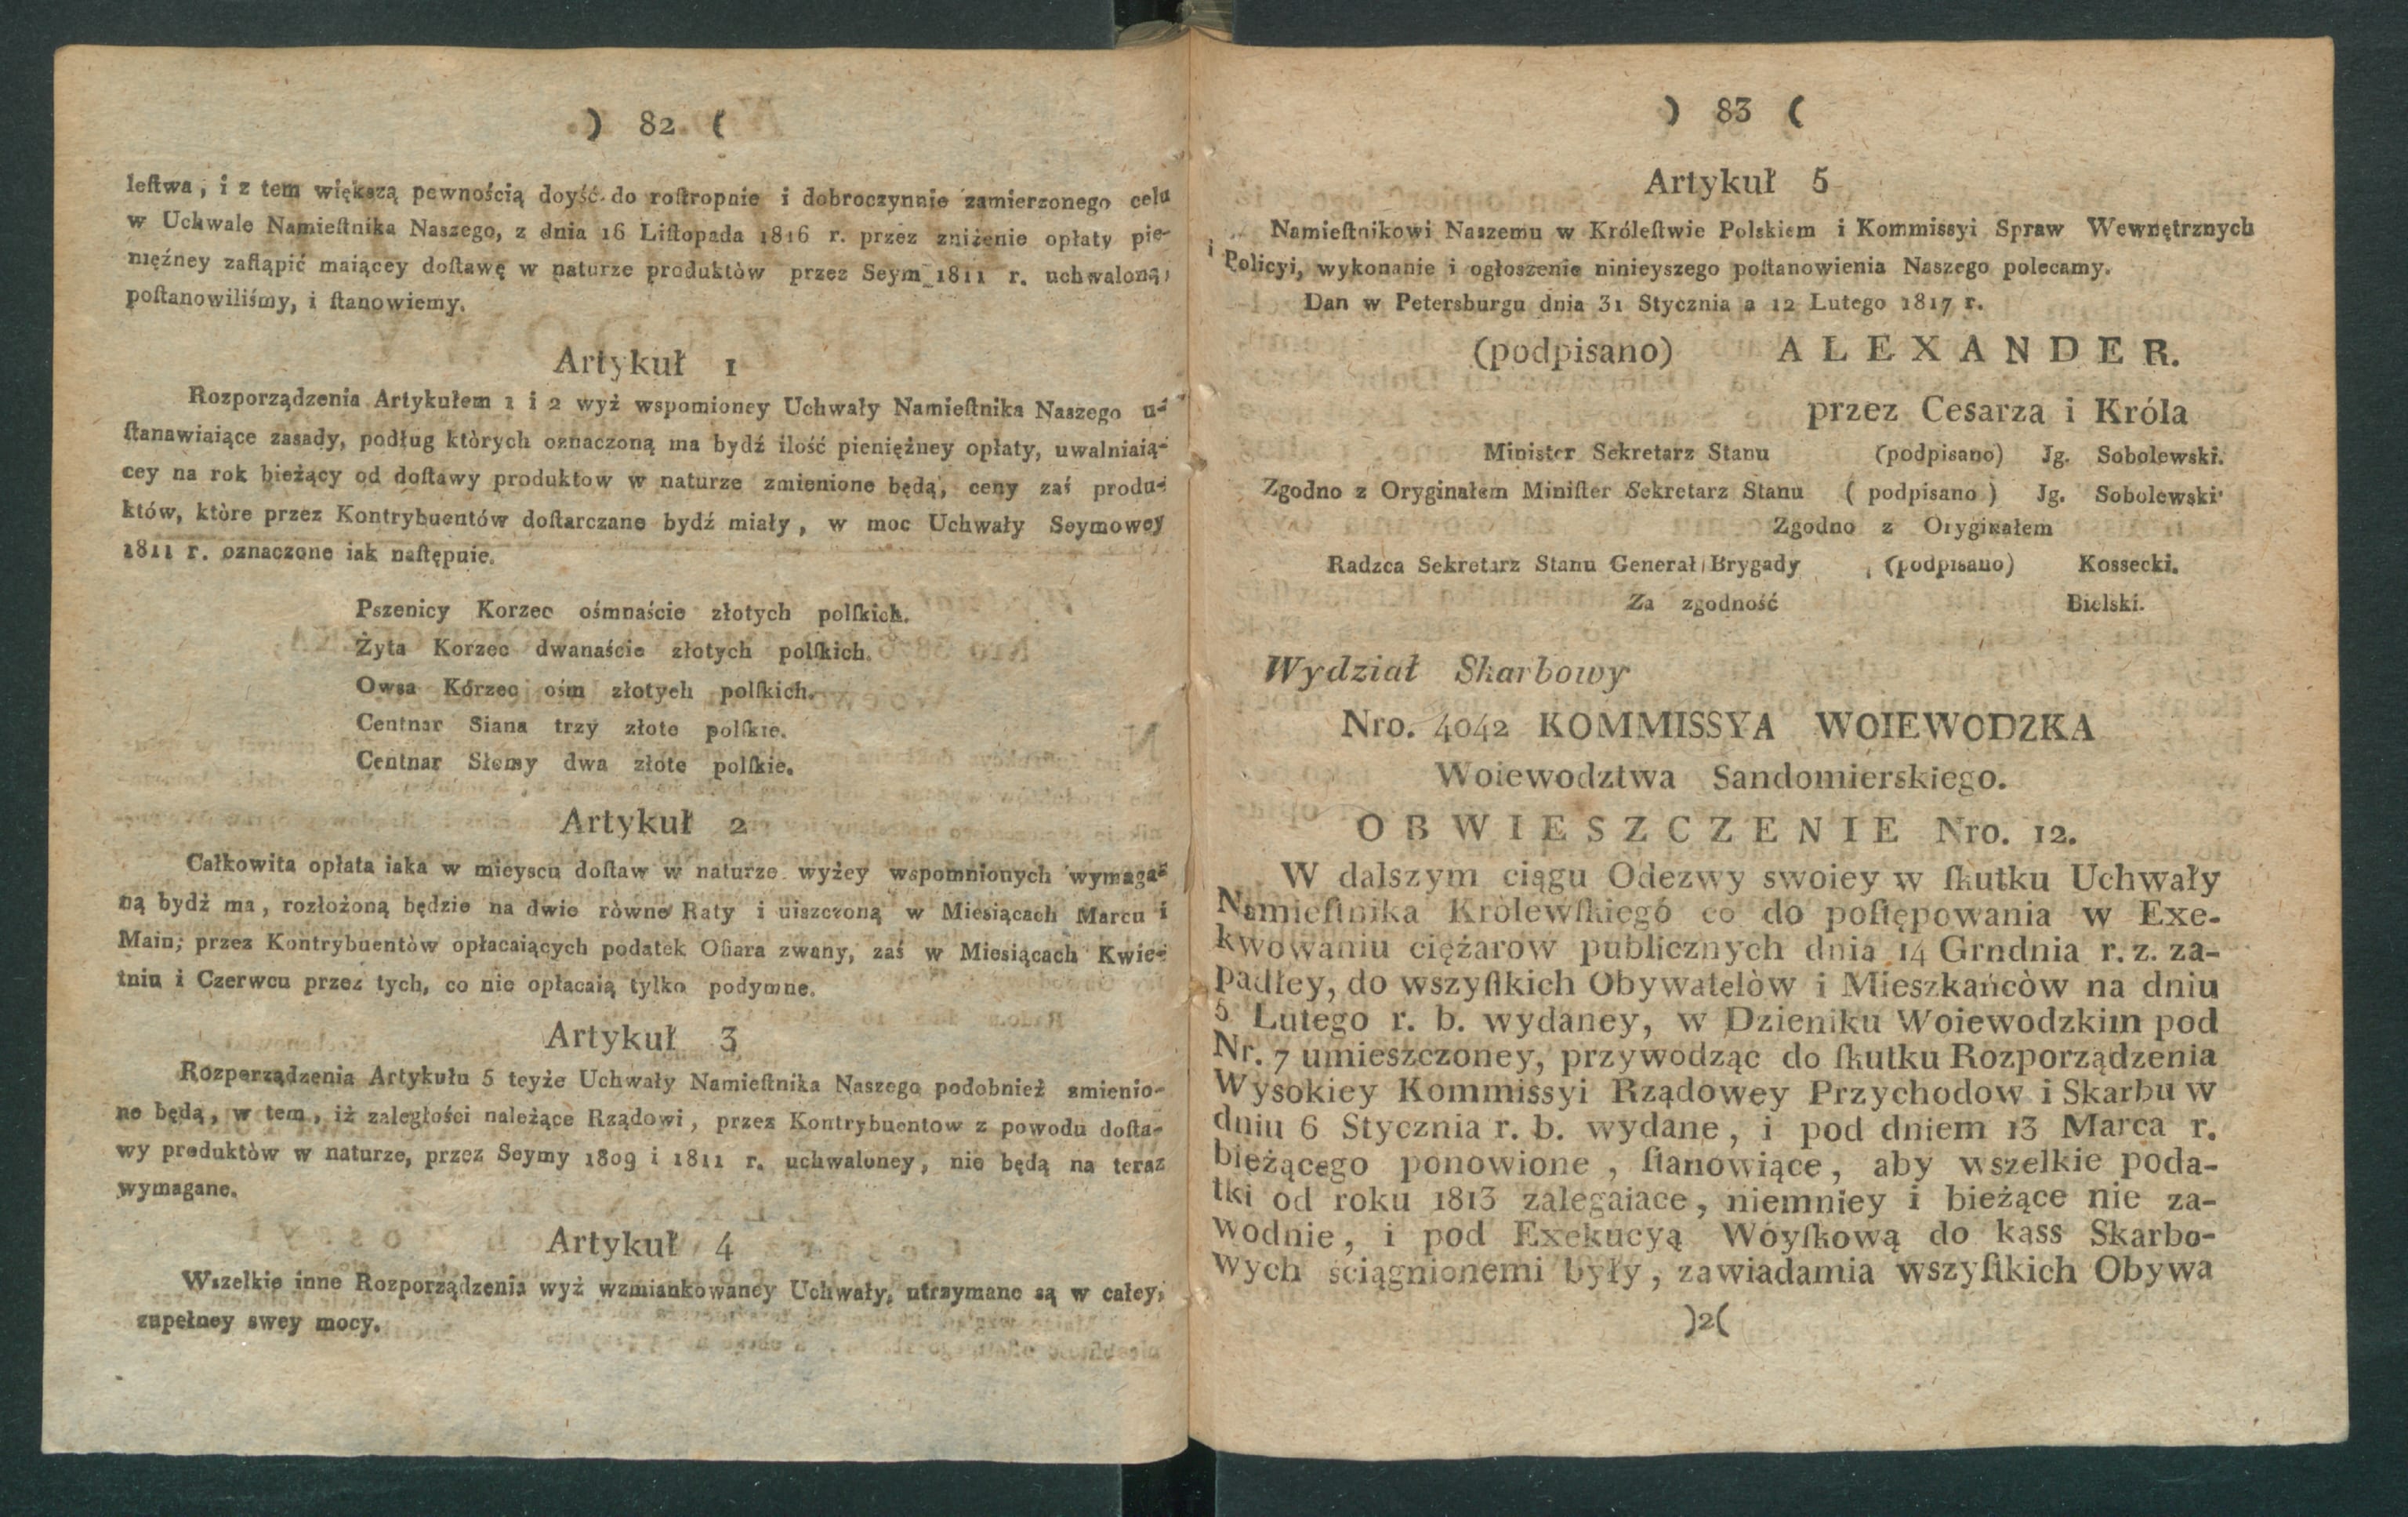 ) 82 (
leſtwa, i z tem większą pewnością doyść do roſtropnie i dobroczynnie zamierzonego celu
w Uchwale Namieſtnika Naszego, z dnia 16 Liſtopada 1816 r. przez zniżenie opłaty pie-
niężney zaſtąpić maiącey doſtawę w naturze produktòw przez Seym 1811 r. uchwaloną,
poſtanowiliśmy, i ſtanowiemy.
Artykuł 1
Rozporządzenia Artykułem 1 i 2 wyż wspomioney Uchwały Namieſtnika Naszego u-
ſtanawiaiące zasady, podług ktòrych oznaczoną ma bydź ilość pieniężney opłaty, uwalniaią-
cey na rok bieżący od doſtawy produktow w naturze zmienione będą, ceny zaś produ-
któw, które przez Kontrybuentów doſtarczane bydź miały, w moc Uchwały Seymowey
1811 r. oznaczone iak naſtępuie.
Pszenicy Korzec ośmnaście złotych polſkich.
Żyta Korzec dwanaście złotych polſkich.
Owsa Korzec ośm złotych polſkich.
Centnar Siana trzy złote polſkie.
Centnar Słomy dwa złote polſkie.
Artykuł 2
Całkowita opłata iaka w mieyscu doſtaw w naturze wyżey wspomnionych wymaga-
ną bydź ma, rozłożoną będzie na dwie ròwne Raty i uiszczoną w Miesiącach Marcu i
Maiu, przez Kontrybuentòw opłacaiących podatek Ofiara zwany, zaś w Miesiącach Kwie-
tniu i Czerwcu przez tych, co nie opłacaią tylko podymne.
Artykuł 3
Rozporządzenia Artykułu 5 teyże Uchwały Namieſtnika Naszego podobnież zmienio-
ne będą, w tem, iż zaległości należące Rządowi, przez Kontrybuentow z powodu doſta-
wy produktòw w naturze, przez Seymy 1809 i 1811 r. uchwaloney, nie będą na teraz
wymagane.
Artykuł 4
Wszelkie inne Rozporządzenia wyż wzmiankowaney Uchwały, utrzymane są w całey,
zupełney swey mocy.
) 83 (
Artykuł 5
Namieſtnikowi Naszemu w Króleſtwie Polskiem i Kommissyi Spraw Wewnętrznych
i Policyi, wykonanie i ogłoszenie ninieyszego poſtanowienia Naszego polecamy.
Dan w Petersburgu dnia 31 Stycznia a 12 Lutego 1817 r.
(podpisano) ALEXANDER.
przez Cesarza i Króla
Minister Sekretarz Stanu (podpisano) Jg. Sobolewski.
Zgodno z Oryginałem Miniſter Sekretarz Stanu ( podpisano ) Jg. Sobolewski'
Zgodno z Oryginałem
Radzca Sekretarz Stanu Generał Brygady (podpisano) Kossecki.
Za zgodność Bielski.
Wydział Skarbowy
Nro. 4042 KOMMISSYA WOIEWODZKA
Woiewodztwa Sandomierskiego.
OBWIESZCZENIE Nro. 12.
W dalszym ciągu Odezwy swoiey w ſkutku Uchwały
Namieſtnika Krolewſkiegó co do poſtępowania w Exe-
kwowaniu ciężarow publicznych dnia 14 Grndnia r. z. za-
padłey, do wszyſtkich Obywatelòw i Mieszkańcòw na dniu
5 Lutego r. b. wydaney, w Dzieniku Woiewodzkim pod
Nr. 7 umieszczoney, przywodząc do ſkutku Rozporządzenia
Wysokiey Kommissyi Rządowey Przychodow i Skarbu w
dniu 6 Stycznia r. b. wydane, i pod dniem 13 Marca r.
bieżącego ponowione, ſtanowiące, aby wszelkie poda-
tki od roku 1813 zalegaiace, niemniey i bieżące nie za-
wodnie, i pod Exekucyą Wóyſkową do kass Skarbo-
wych ściągnionemi były, zawiadamia wszyſtkich Obywa
)2(